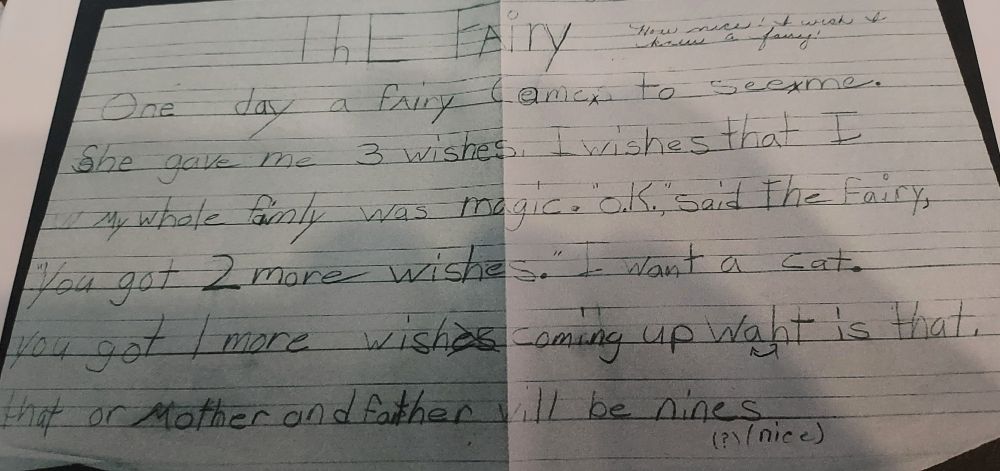 ThE FAiry
How nice! I wish I
knew a fairy!
One day a fairy came to see me.
She gave me 3 wishes. I wishes that I
My whole fainly was magic. "O.K.," said The Fairy,
"You got 2 more wishes." I want a cat.
you got 1 more wish coming up Waht is that.
that or Mother and father will be nines
(?) (nice)